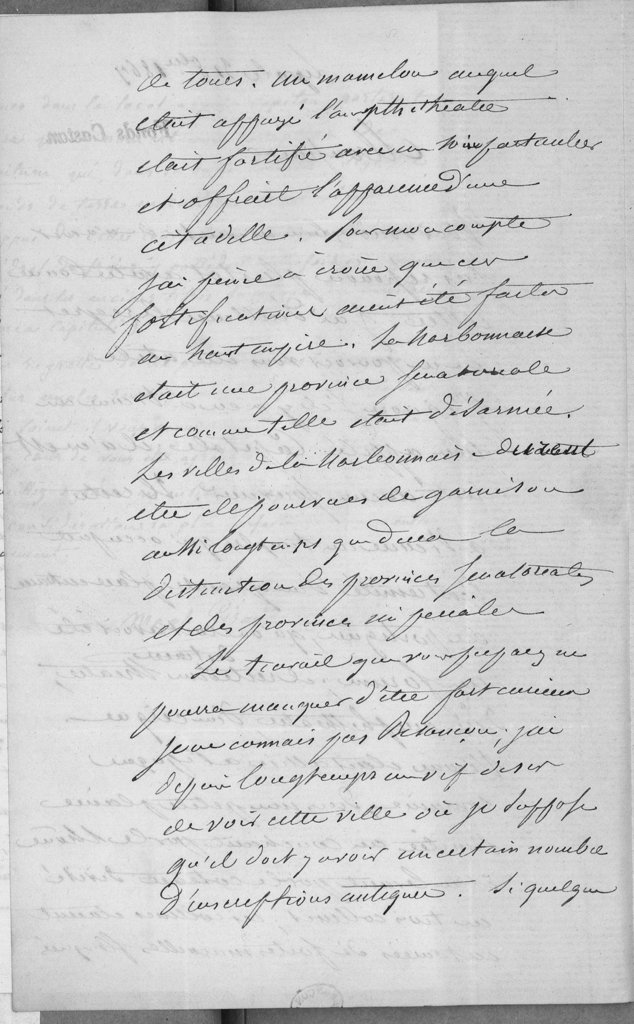 de tours. Un mamelon auquel
était appuyé l'amphithéatre
était fortifié avec un soin particulier
et offrait l'apparence d'une
citadelle. Pour mon compte
j'ai peine à croire que ces
fortifications aient été faites
au haut empire. La Narbonnaise
était une province senatoriale
et comme telle était désarmée.
Les villes de la Narbonnaise durent
etre dépourvues de garnison
aussi longtemps que dura la
distinction des provinces senatoriales
et des provinces impériales
Le travail que vous préparez ne
pourra manquer d'être fort curieux
Je ne connais pas Besançon; j'ai
depuis longtemps un vif desir
de voir cette ville où je suppose
qu'il doit y avoir un certain nombre
d'inscriptions antiques. Si quelque
Fonds Castan